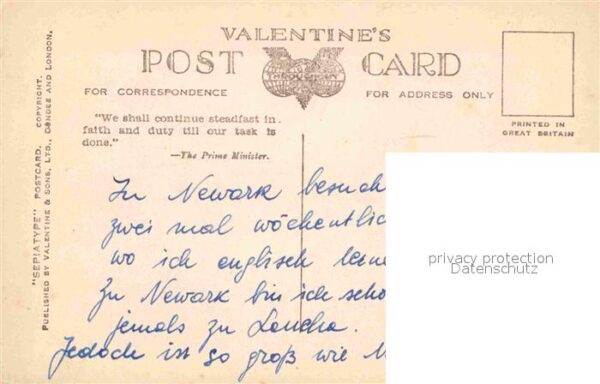 VALENTINE'S
POST CARD
THROUGHOUT
FOR CORRESPONDENCE
FOR ADDRESS ONLY
"We shall continue steadfast in
faith and duty till our task is
done."
—The Prime Minister.
PRINTED IN
GREAT BRITAIN
"SEPIATYPE" POSTCARD. COPYRIGHT.
PUBLISHED BY VALENTINE & SONS, LTD., DUNDEE AND LONDON.
In Newark besuch
zwei mal wöchentlic
wo ich englisch lerne
Zu Newark bin ich scho
jemals zu
Jedoch ist so groß wie
privacy protection
Datenschutz